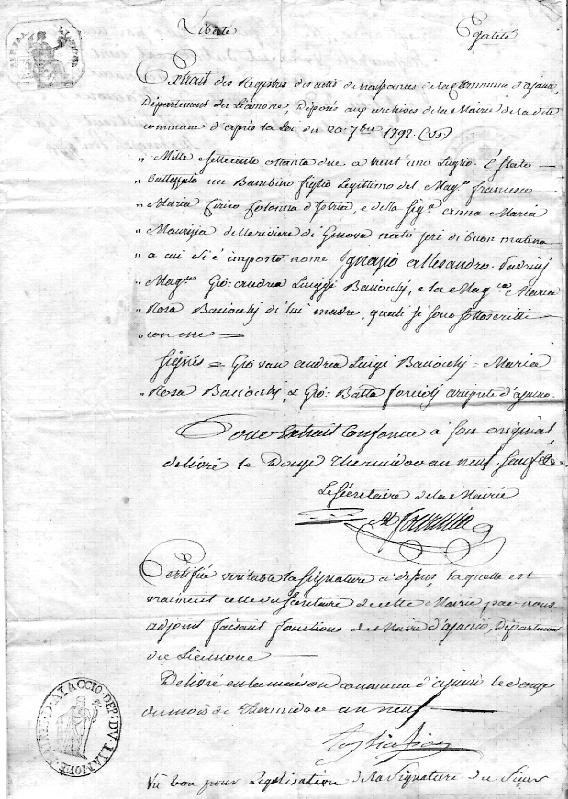 Liberté Egalité
Extrait des Registres des actes de naissances de la Commune d'ajaccio,
Département du Liamone, Déposés aux archives de la Mairie de la dite
commune d'après la Loi du 20 7bre 1792. (vs)
„ Mille settecento ottanta due a vent uno Luglio è stato
„ battezzato un Bambino figlio legittimo del Mag.co francesco
„ Maria Cirico Colonna d'Istria, e della Sig.ra anna Maria
„ Maurizia della riviera di Genova nato jeri di buon matino
„ a cui si è imposto nome Ignazio allesandro. Padrini
„ Mag.co Gio: andrea Luiggi Baciochj, e la Mag.ca Maria
„ Rosa Baciochj di lui madre, quali si sono sottoscritti
„ con me =
Signés = Giovan andrea Luigi Baciochj = Maria
„ Rosa Baciochj, & Gio: Batta arciprete d'ajaccio.
Pour Extrait Conforme à son original
délivré le Douze Thermidor an neuf
Le Sécrétaire de la Mairie
Certifié véritable la signature ci dessus laquelle est
vraiment celle du Secrétaire de cette Mairie par nous
adjoint faisant fonctions de Maire d'ajaccio, Département
du Liamone —
Délivré en la maison commune d'ajaccio le douze
du mois de Thermidor an neuf
Vu bon pour Légalisation de la Signature du Sieur
AJACCIO DEP. DU LIAMONE